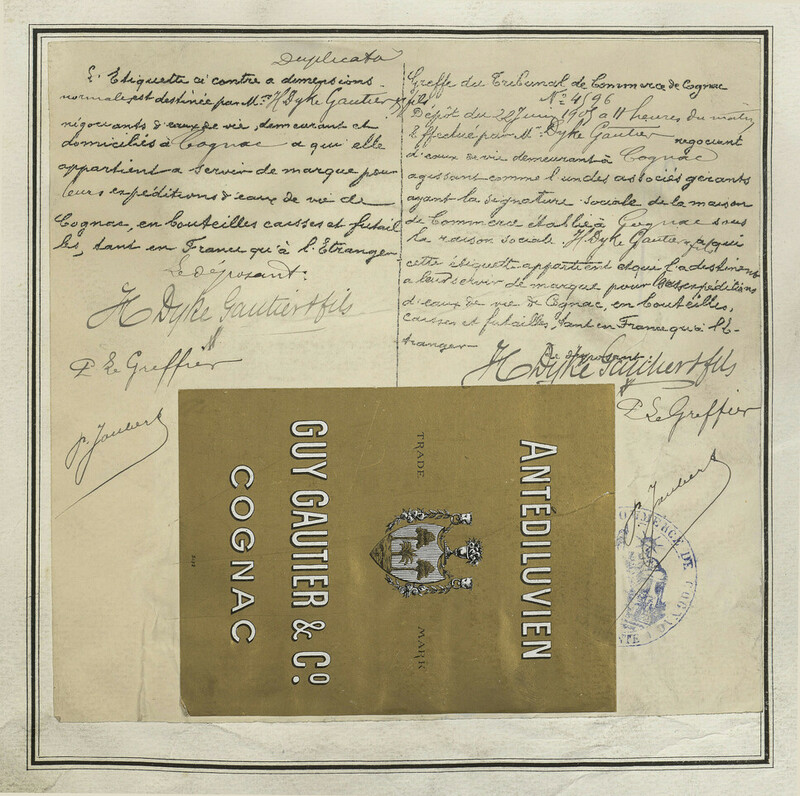 Duplicata
L'Etiquette ci contre a dimensions
normale, est destinée par Mrs H Dyke Gautier & fils
négociants d'eaux de vie, demeurant et
domiciliés à Cognac a qui elle
appartient a servir de marque pour
leurs expéditions d'eaux de vie de
Cognac, en bouteilles caisses et futail
les, tant en France qu'à l'Etranger
Le déposant:
H Dyke Gautier & fils
P Le Greffier
P. Joubert
Greffe du Tribunal de Commerce de Cognac
No 4196
Dépôt du 22 Juin 190 a 11 heures du matin
Effectué par Mr Dyke Gautier négociant
d'eaux de vie demeurant à Cognac
agissant comme l'un des associés gérants
ayant la signature sociale de la maison
de Commerce établie à Cognac sous
la raison sociale H Dyke Gautier & fils a qui
cette étiquette appartient et qui l'a destinent
a leur servir de marque pour expéditions
d'eaux de vie de Cognac, en bouteilles,
caisses et futailles, tant en France qu'à l'E-
tranger
Le déposant:
H Dyke Gautier & fils
P Le Greffier
P. Joubert
COMMERCE DE COGNAC
ANTÉDILUVIEN
TRADE MARK
GUY GAUTIER & Co
COGNAC